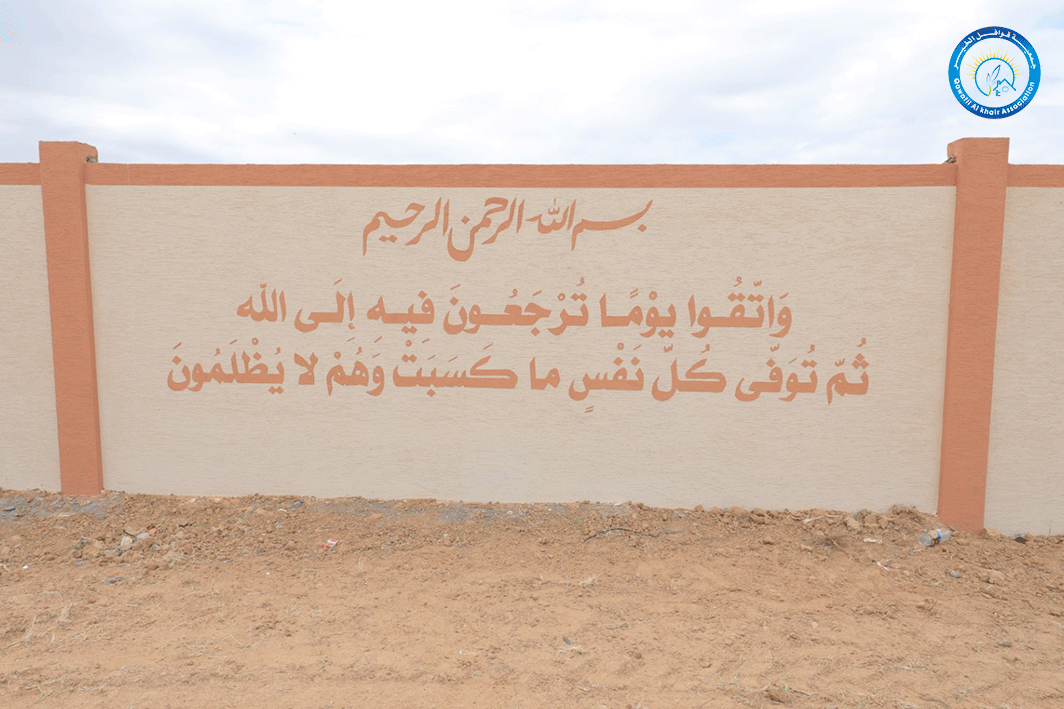 جمعية قوافل الخير
Qawafil Al khair Association
بسم الله الرحمن الرحيم
وَاتّقُوا يوْمًا تُرْجَعُونَ فيهِ إلَى اللّه
ثُمّ تُوَفّى كُلّ نَفْسٍ ما كَسَبَتْ وَهُمْ لا يُظْلَمُونَ